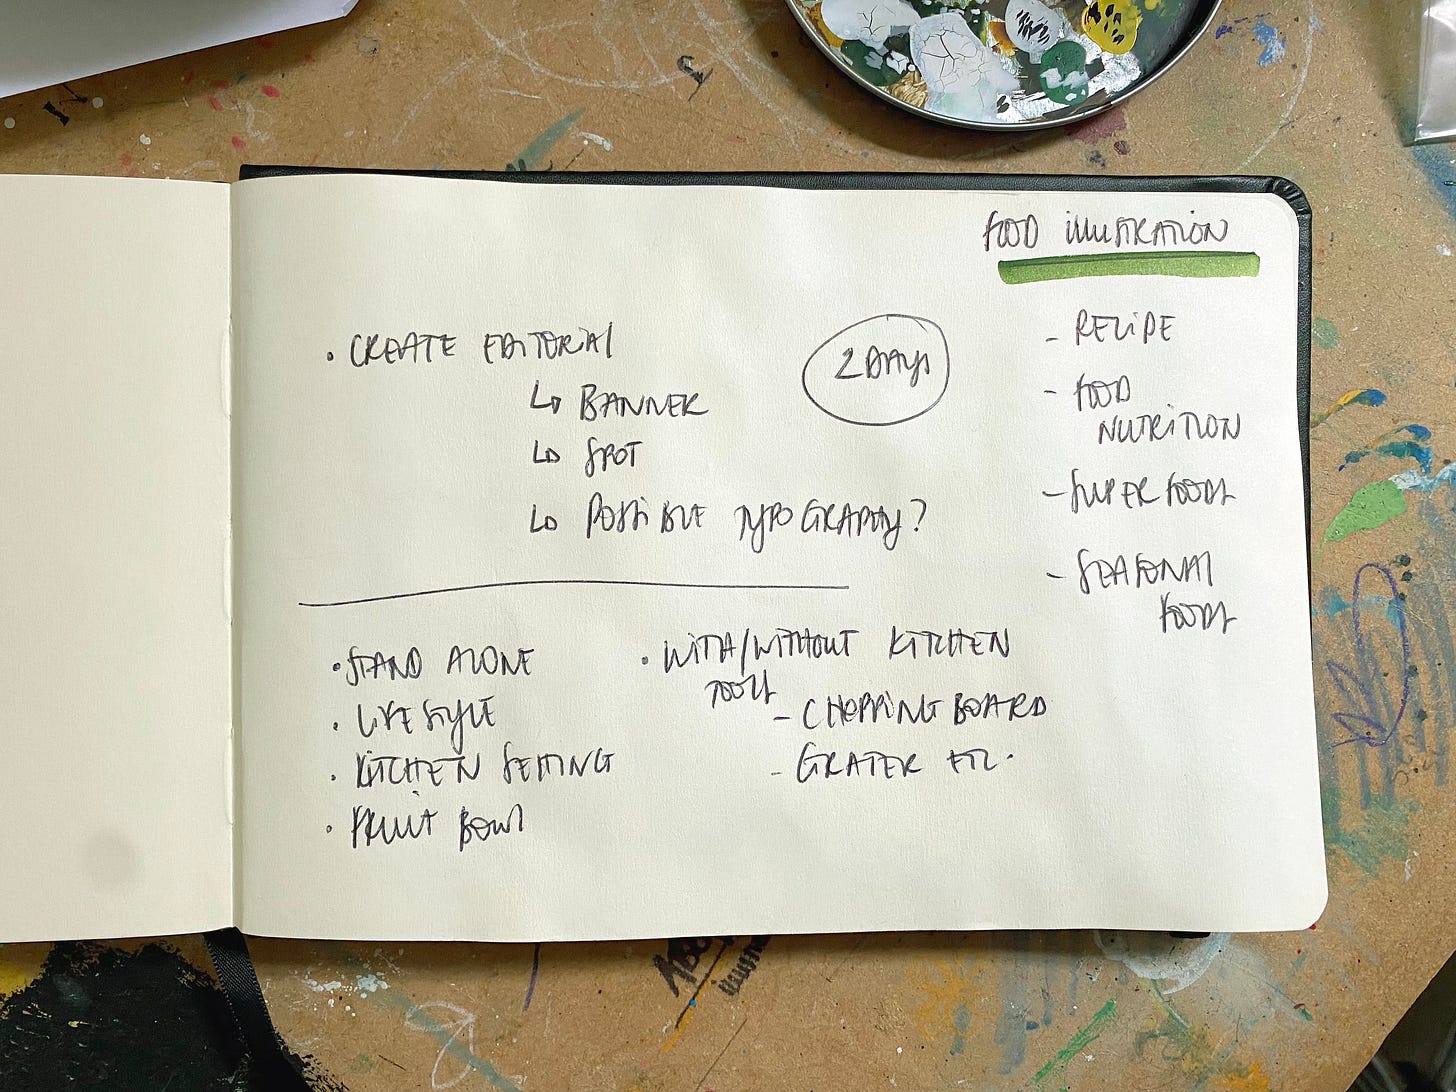 FOOD ILLUSTRATION
• CREATE EDITORIAL
↳ BANNER
↳ SPOT
↳ POSSIBLE TYPOGRAPHY?
2 DAYS
- RECIPE
- FOOD
NUTRITION
- SUPER FOODS
- SEASONAL
FOODS
• STAND ALONE
• LIFE STYLE
• KITCHEN SETTING
• FRUIT BOWL
• WITH/WITHOUT KITCHEN
TOOLS
- CHOPPING BOARD
- GRATER ETC.